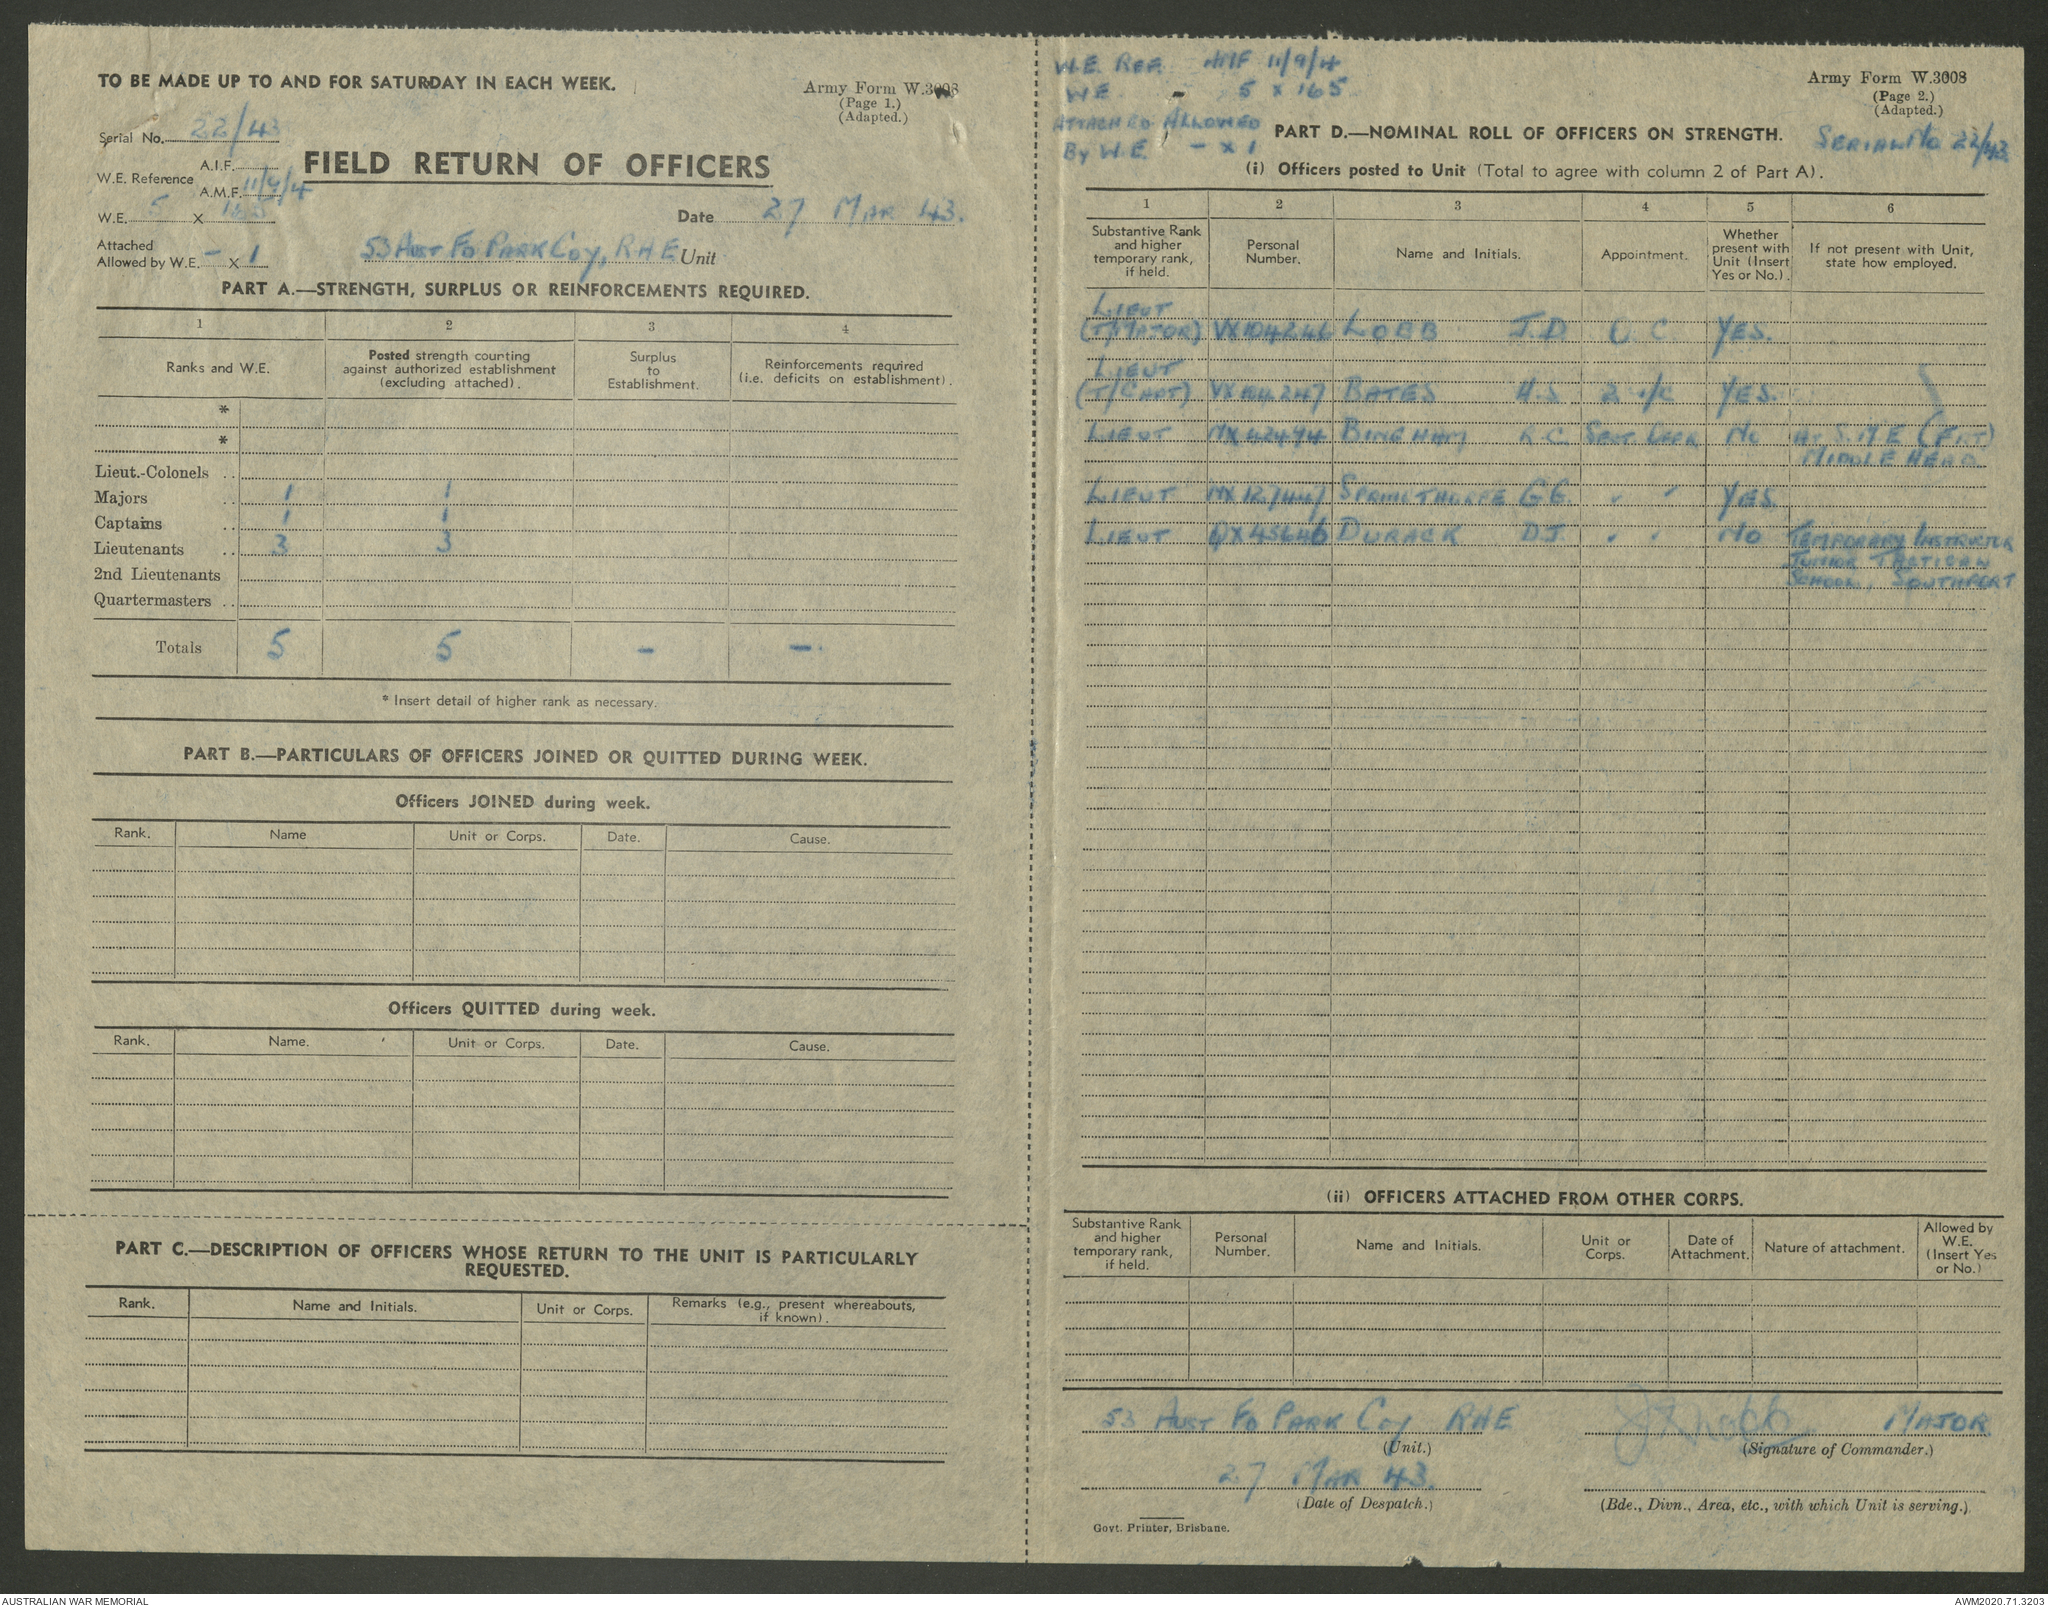 TO BE MADE UP TO AND FOR SATURDAY IN EACH WEEK.
Army Form W.3008
(Page 1.)
(Adapted.)
Serial No. 22/43
W.E. Reference
A.I.F.
A.M.F. 11/9/4
FIELD RETURN OF OFFICERS
W.E. 5 X 165
Date 27 MAR 43.
Attached
Allowed by W.E. - X 1
53 AUST FD PARK COY, RAE Unit
PART A.—STRENGTH, SURPLUS OR REINFORCEMENTS REQUIRED.
1 2 3 4
Ranks and W.E.
Posted strength counting
against authorized establishment
(excluding attached).
Surplus
to
Establishment.
Reinforcements required
(i.e. deficits on establishment).
*
*
Lieut.-Colonels ..
Majors .. 1 1
Captains .. 1 1
Lieutenants .. 3 3
2nd Lieutenants
Quartermasters ..
Totals 5 5 - -
* Insert detail of higher rank as necessary.
PART B.—PARTICULARS OF OFFICERS JOINED OR QUITTED DURING WEEK.
Officers JOINED during week.
Rank. Name Unit or Corps. Date. Cause.
Officers QUITTED during week.
Rank. Name. Unit or Corps. Date. Cause.
PART C.—DESCRIPTION OF OFFICERS WHOSE RETURN TO THE UNIT IS PARTICULARLY
REQUESTED.
Rank. Name and Initials. Unit or Corps.
Remarks (e.g., present whereabouts,
if known).
W.E. REF. AMF 11/9/4
WE - 5 x 165
ATTACHED ALLOWED
By W.E. - x 1
Army Form W.3008
(Page 2.)
(Adapted.)
PART D.—NOMINAL ROLL OF OFFICERS ON STRENGTH.
SERIAL NO 22/43
(i) Officers posted to Unit (Total to agree with column 2 of Part A).
1 2 3 4 5 6
Substantive Rank
and higher
temporary rank,
if held.
Personal
Number.
Name and Initials.
Appointment.
Whether
present with
Unit (Insert
Yes or No.).
If not present with Unit,
state how employed.
LIEUT
(T/MAJOR) VX104246 LOEB J.D O.C. YES.
LIEUT
(T/CAPT) VX104247 BATES H.S 2 i/c YES.
LIEUT NX42494 BINGHAM R.C. NO AT S.M E (FNT)
MIDDLE HEAD
LIEUT NX127447 SPRINGTHORPE G G. " " YES
LIEUT QX45646 DURACK D.J. " " NO TEMPORARY INSTRUCTOR
JUNIOR TACTICAL
SCHOOL, SOUTHPORT
(ii) OFFICERS ATTACHED FROM OTHER CORPS.
Substantive Rank
and higher
temporary rank,
if held.
Personal
Number.
Name and Initials.
Unit or
Corps.
Date of
Attachment.
Nature of attachment.
Allowed by
W.E.
(Insert Yes
or No.)
53 AUST FD PARK COY RAE
(Unit.)
MAJOR
(Signature of Commander.)
27 MAR 43.
(Date of Despatch.)
(Bde., Divn., Area, etc., with which Unit is serving.)
Govt. Printer, Brisbane.
AUSTRALIAN WAR MEMORIAL
AWM2020.71.3203